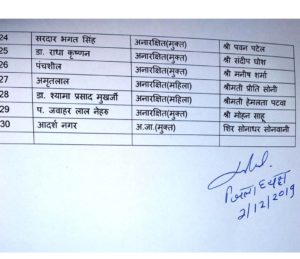 24 सरदार भगत सिंह अनारक्षित(मुक्त) श्री पवन पटेल
25 डा. राधा कृष्णन अनारक्षित(मुक्त) श्री संदीप घोश
26 पंचशील अनारक्षित(मुक्त) श्री मनीष शर्मा
27 अमृतलाल अनारक्षित(महिला) श्रीमती प्रीति सोनी
28 डा. श्यामा प्रसाद मुखर्जी अनारक्षित(महिला) श्रीमती हेमलता पटवा
29 प. जवाहर लाल नेहरु अनारक्षित(मुक्त) श्री मोहन साहू
30 आदर्श नगर अ.जा.(मुक्त) शिर सोनाधर सोनवानी
जिलाध्यक्ष
2/12/2019